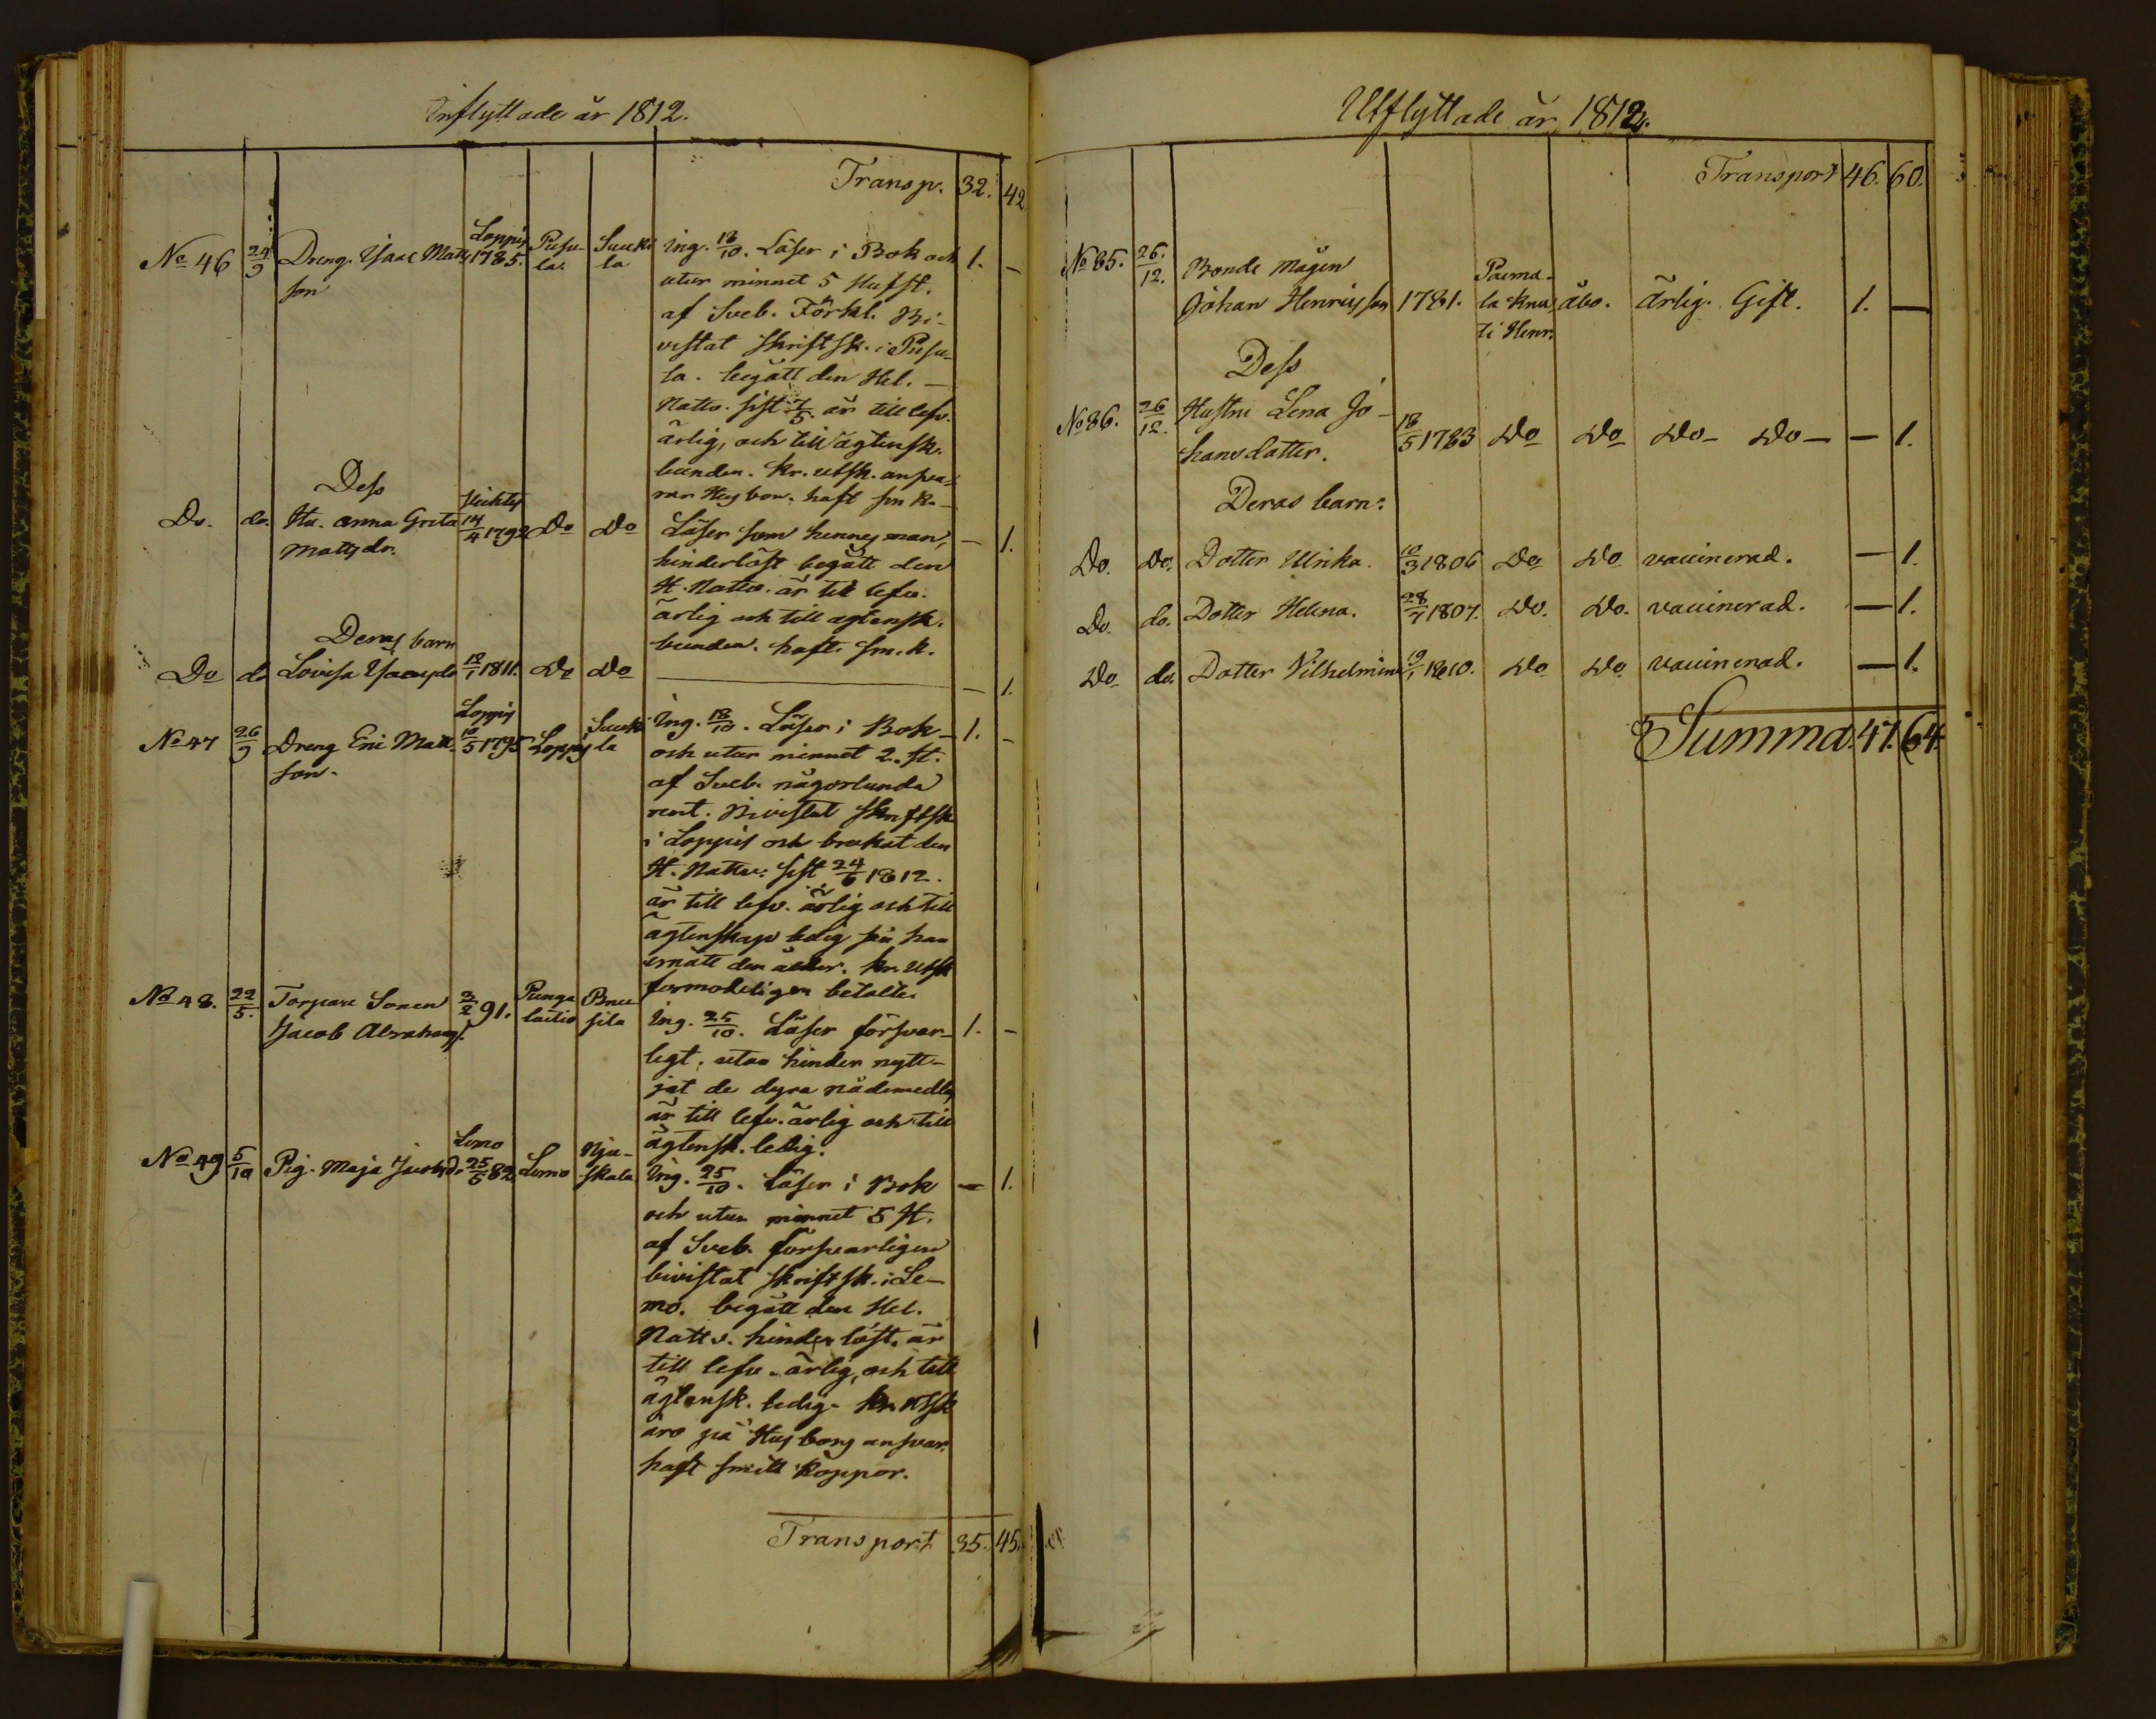 Inflyttade år 1812.
Transp. 32. 42.
No 46 24/9 Dreng Isaac Matts Loppis 1785. Pusu- Suuki Ing. 18/10. Läser i Bok och 1. -
son la. la utur minnet 5 Hufst.
af Sveb. Förkl. Bi-
vistat skriftsk. i Pusu-
la. begått den Hel. -
Nattv. sist 7/5. är till lefv.
ärlig, och till ägtensk.
bunden. kr. utsk. ansva-
rar Husbon. haft sm k.
Dess
Do. do. Hu. Anna Greta Vichtis 14/4 1792 Do Do Läser som hennes man, - 1.
Mattsdr. hinderlöst begått den
H. Nattv. är till lefv.
ärlig och till ägtensk.
bunden. haft. sm. k.
Deras barn
Do do Lovisa 12/1 1811. Do Do - 1.
No 47 26/9 Dreng Eric Matt- Loppis 10/5 1795 Loppis Suuki la Ing. 18/10. Läser i Bok 1. -
son. och utur minnet 2. st.
af Sveb. någorlunda
rent. Bivistat skriftsk
i Loppis och brukat den
H. Nattv. sist 24/6 1812.
är till lefv. ärlig och till
ägtenskap ledig sen han
ernått den ålder. kr. Utsk
formodeligen betalte.
No 48. 22/5. Torpare Sonen 3/2 91. Punga Bru Ing. 25/10. Läser försvar- 1. -
Jacob Abrahams. laitio sila legt, utan hinder nytt-
jat de dyra nådemedlen,
är till lefv. ärlig och till
ägtensk. ledig.
No 49 5/10 Pig. Maja Jacobsd. Lemo 25/5 82 Lemo Nju- Ing. 25/10. Läser i Bok - 1.
skala och utur minnet 5 st.
af Sveb. försvarligen
bivistat skriftsk. i Le-
mo. begått den Hel.
Nattv. hinderlöst. är
till lefv. ärlig, och till
ägtensk. ledig. kr. utsk
äro på Husbons ansvar.
haft smitt koppor.
Transport 35. 45.
Utflyttade år 1812.
Transport 46. 60.
No 85. 26/12. Bonde Mågen Paema-
Johan Henricsson 1781. la Knu åbo. ärlig. Gift. 1. -
ti Henr.
Dess
No 86. 26/12. Hustru Lena Jo- 18/5 1783 Do Do Do Do - 1.
hansdotter.
Deras barn:
Do. Do. Dotter Ulrika. 10/3 1806 Do Do vaccinerad. - 1.
Do. do. Dotter Helena. 28/7 1807. Do. Do. vaccinerad. - 1.
Do do. Dotter Vilhelmina 19/1 1810. Do Do vaccinerad. - 1.
Summa. 47. 64.